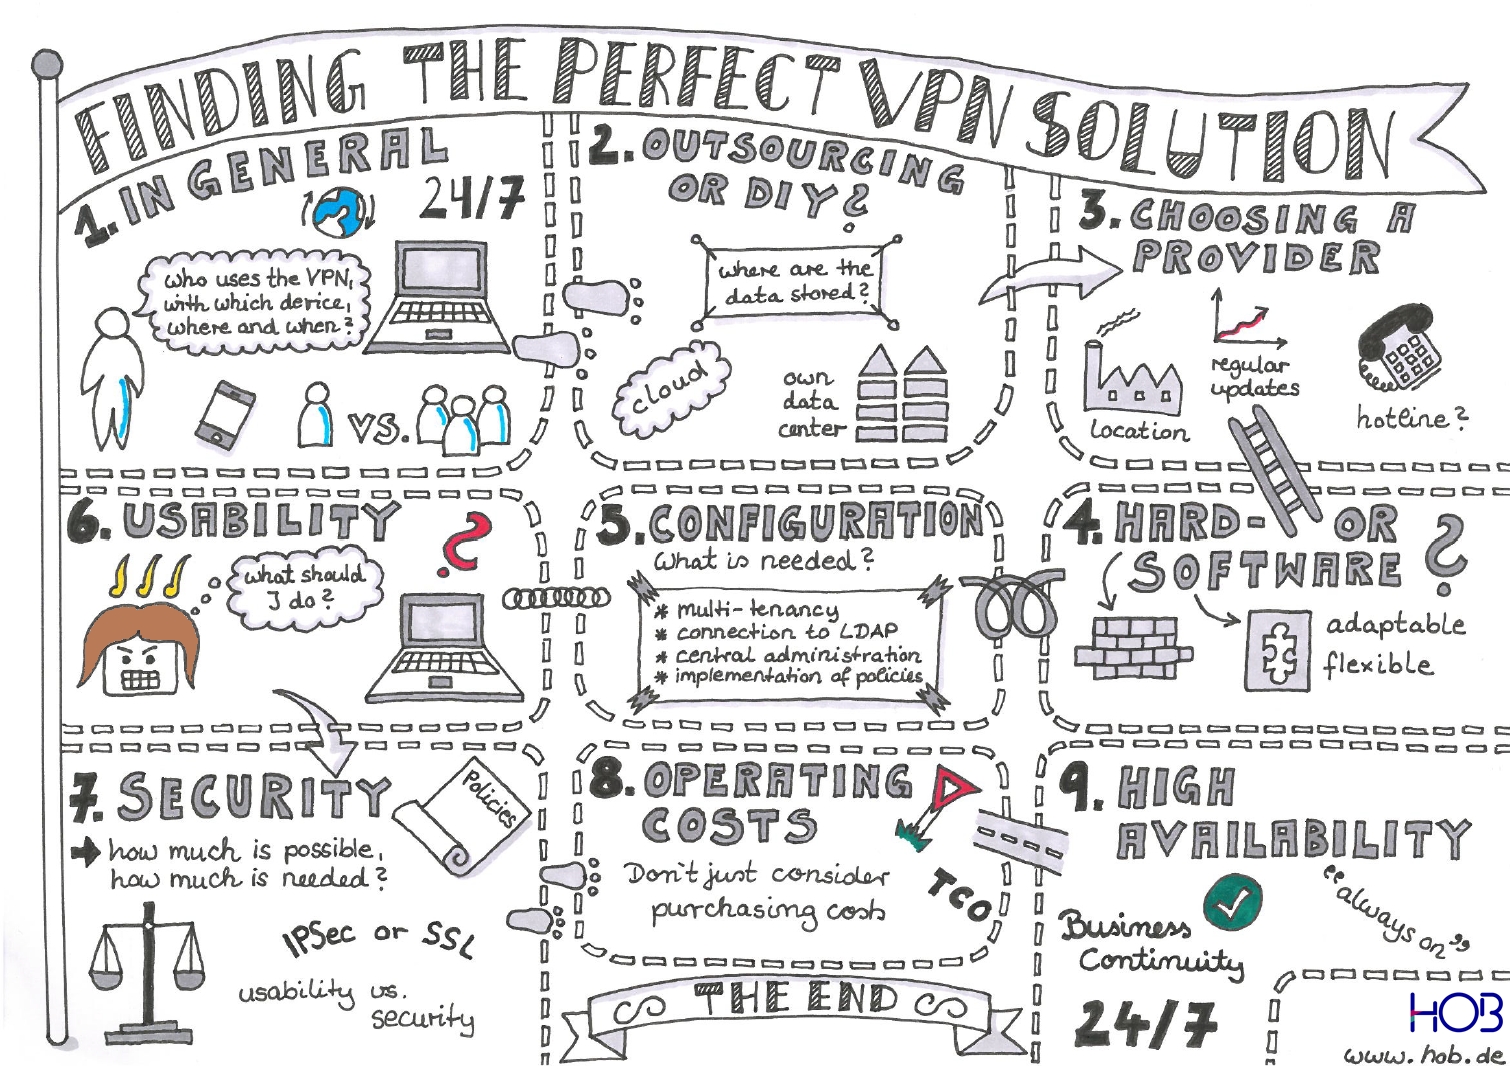 FINDING THE PERFECT VPN SOLUTION
1. IN GENERAL
24/7
who uses the VPN,
with which device,
where and when?
vs.
2. OUTSOURCING
OR DIY?
where are the
data stored?
cloud
own
data
center
3. CHOOSING A
PROVIDER
location
regular
updates
hotline?
4. HARD- OR
SOFTWARE?
adaptable
flexible
5. CONFIGURATION
What is needed?
* multi-tenancy
* connection to LDAP
* central administration
* implementation of policies
6. USABILITY
?
what should
I do?
7. SECURITY
Policies
how much is possible,
how much is needed?
IPSec or SSL
usability vs.
security
8. OPERATING
COSTS
Don't just consider
purchasing costs
TCO
9. HIGH
AVAILABILITY
"always on"
Business
Continuity
24/7
THE END
HOB
www.hob.de